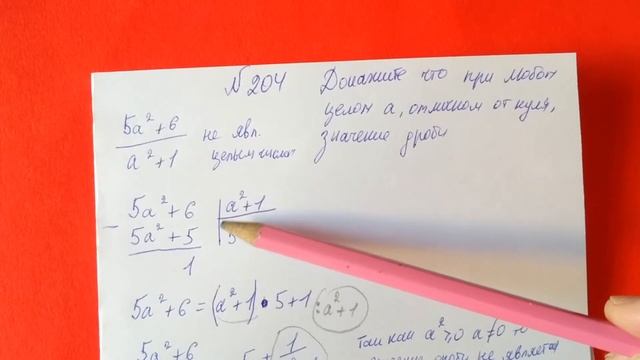 N 204 Докажите что при любом
целом a, отличном от нуля,
значение дроби
5a²+6
a²+1
не явл.
целым числом
- 5a²+6 | a²+1
5a²+5 | 5
1
5a²+6 = (a²+1) • 5+1 : a²+1
5a²+6
5 + 1
Так как a² ≥ 0 a ≠ 0 то
не является